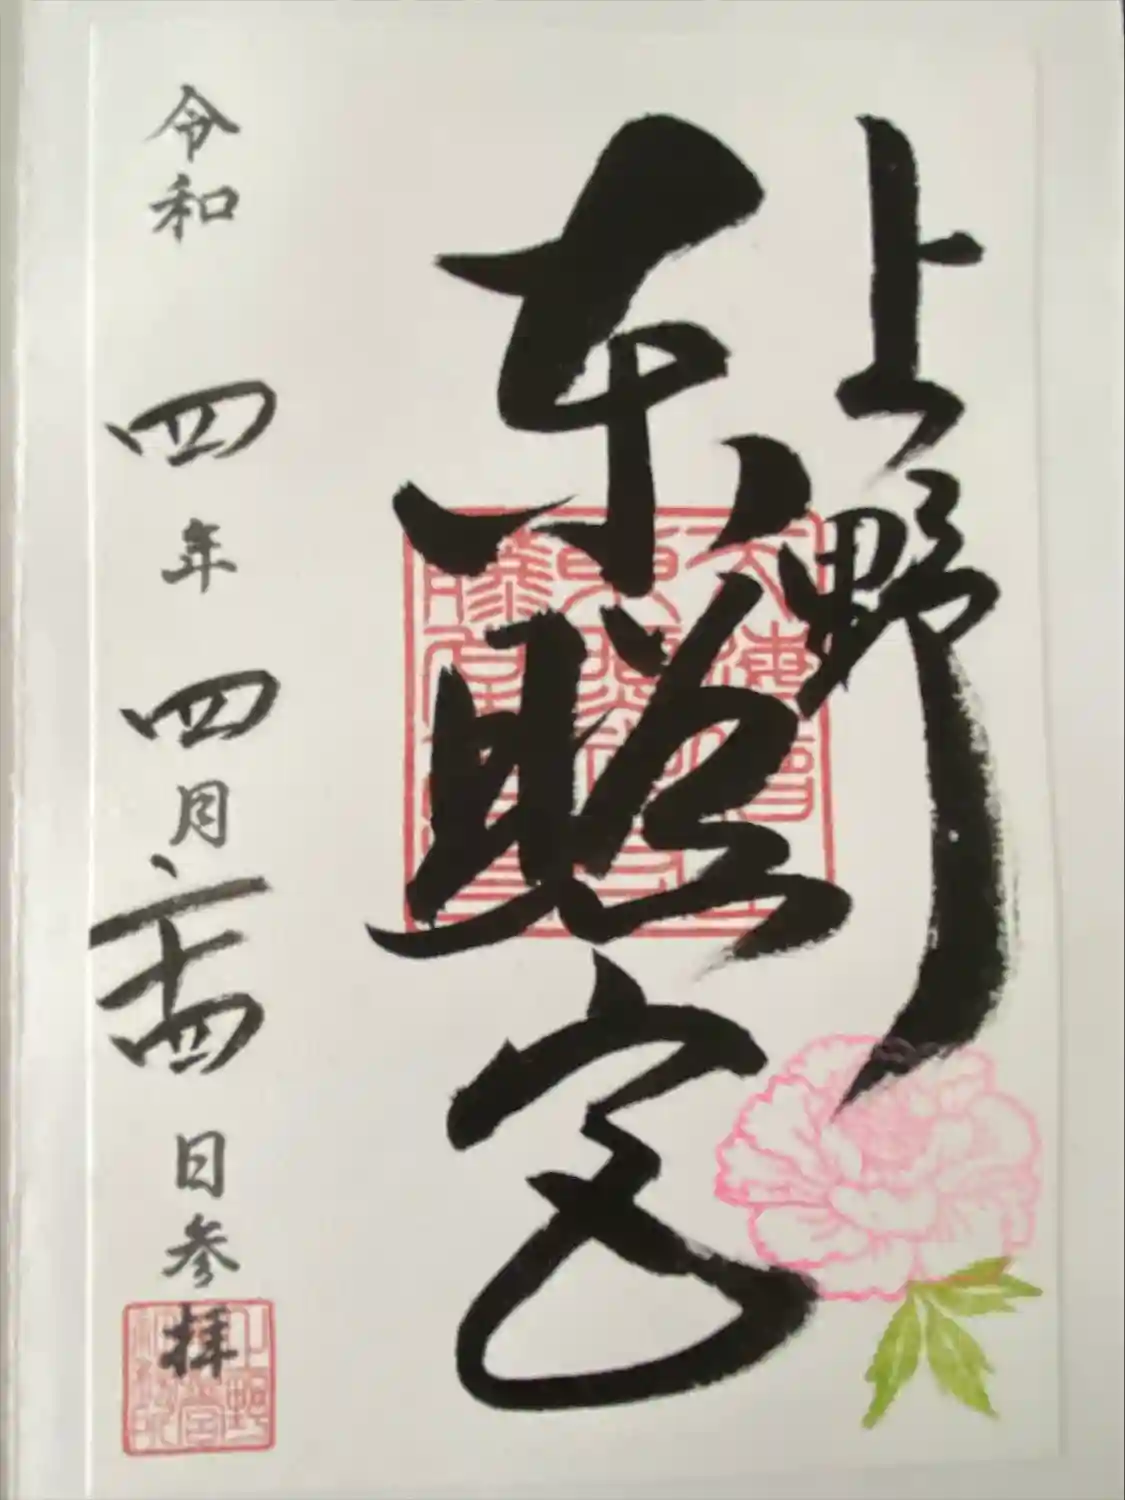 上野
東照宮
令和四年四月二十四日参拝